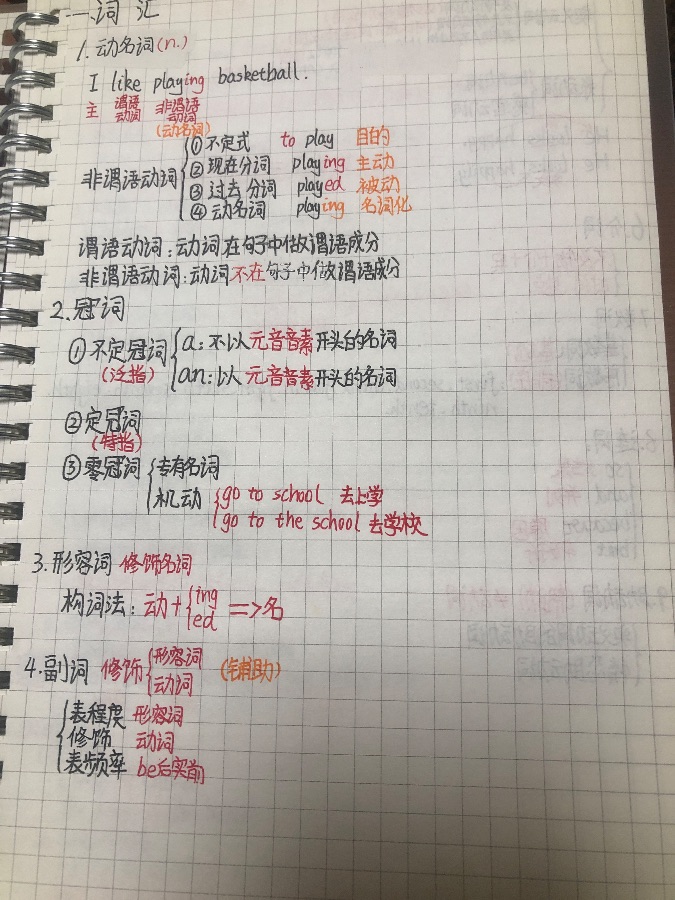 一.词 汇
1. 动名词(n.)
I like playing basketball.
主 谓语动词 非谓语动词
(动名词)
非谓语动词
① 不定式 to play 目的
② 现在分词 playing 主动
③ 过去分词 played 被动
④ 动名词 playing 名词化
谓语动词:动词在句子中做谓语成分
非谓语动词:动词不在句子中做谓语成分
2.冠词
① 不定冠词 a:不以元音音素开头的名词
(泛指) an:以元音音素开头的名词
② 定冠词
(特指)
③ 零冠词 专有名词
机动 go to school 去上学
go to the school 去学校
3.形容词 修饰名词
构词法:动+ ing ed =>名
4.副词 修饰 形容词 动词 (辅助)
表程度 形容词
修饰 动词
表频率 be后实前